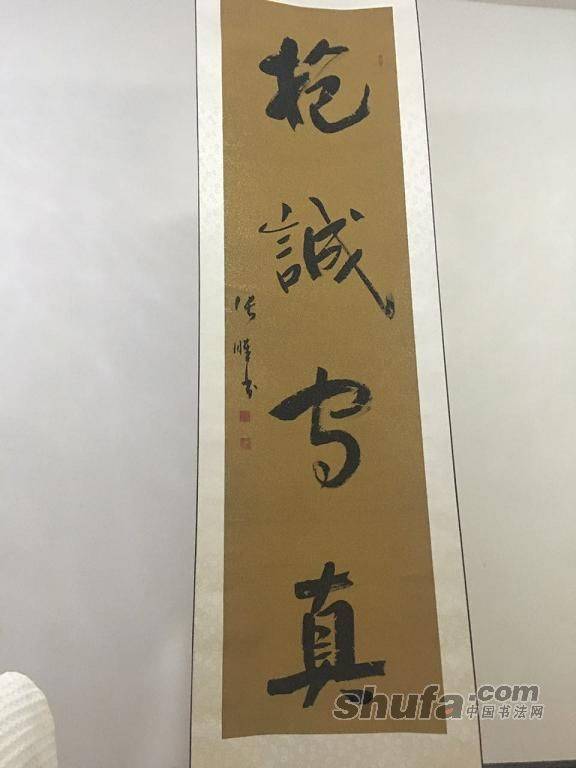 抱誠守真
張 書
shufa.com
中国书法网